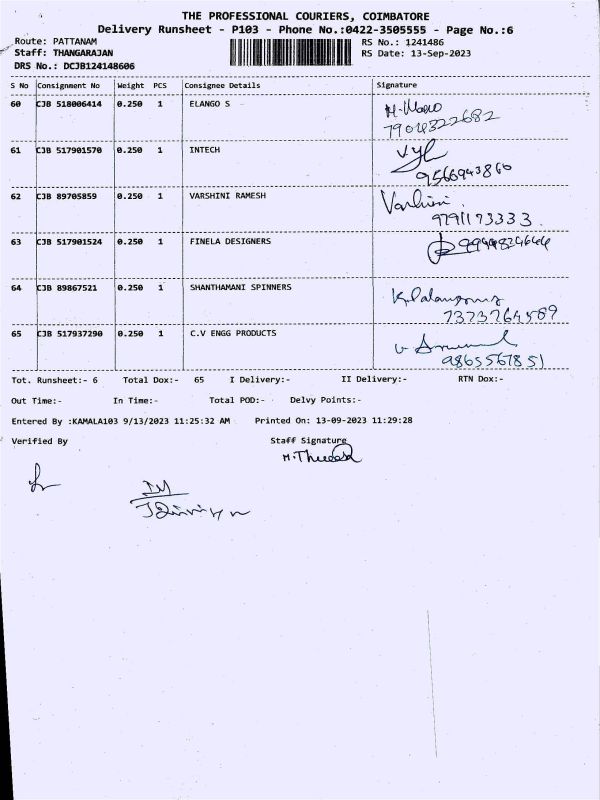 THE PROFESSIONAL COURIERS, COIMBATORE
Delivery Runsheet - P103 - Phone No.:0422-3505555 - Page No.:6
Route: PATTANAM RS No.: 1241486
Staff: THANGARAJAN RS Date: 13-Sep-2023
DRS No.: DCJB124148606
S No Consignment No Weight PCS Consignee Details Signature
60 CJB 518006414 0.250 1 ELANGO S
7904322682
61 CJB 517901570 0.250 1 INTECH
9566943860
62 CJB 89705859 0.250 1 VARSHINI RAMESH Varshini.
9791173333
63 CJB 517901524 0.250 1 FINELA DESIGNERS
64 CJB 89867521 0.250 1 SHANTHAMANI SPINNERS
7373764589
65 CJB 517937290 0.250 1 C.V ENGG PRODUCTS
9865567851
Tot. Runsheet:- 6 Total Dox:- 65 I Delivery:- II Delivery:- RTN Dox:-
Out Time:- In Time:- Total POD:- Delvy Points:-
Entered By :KAMALA103 9/13/2023 11:25:32 AM Printed On: 13-09-2023 11:29:28
Verified By Staff Signature